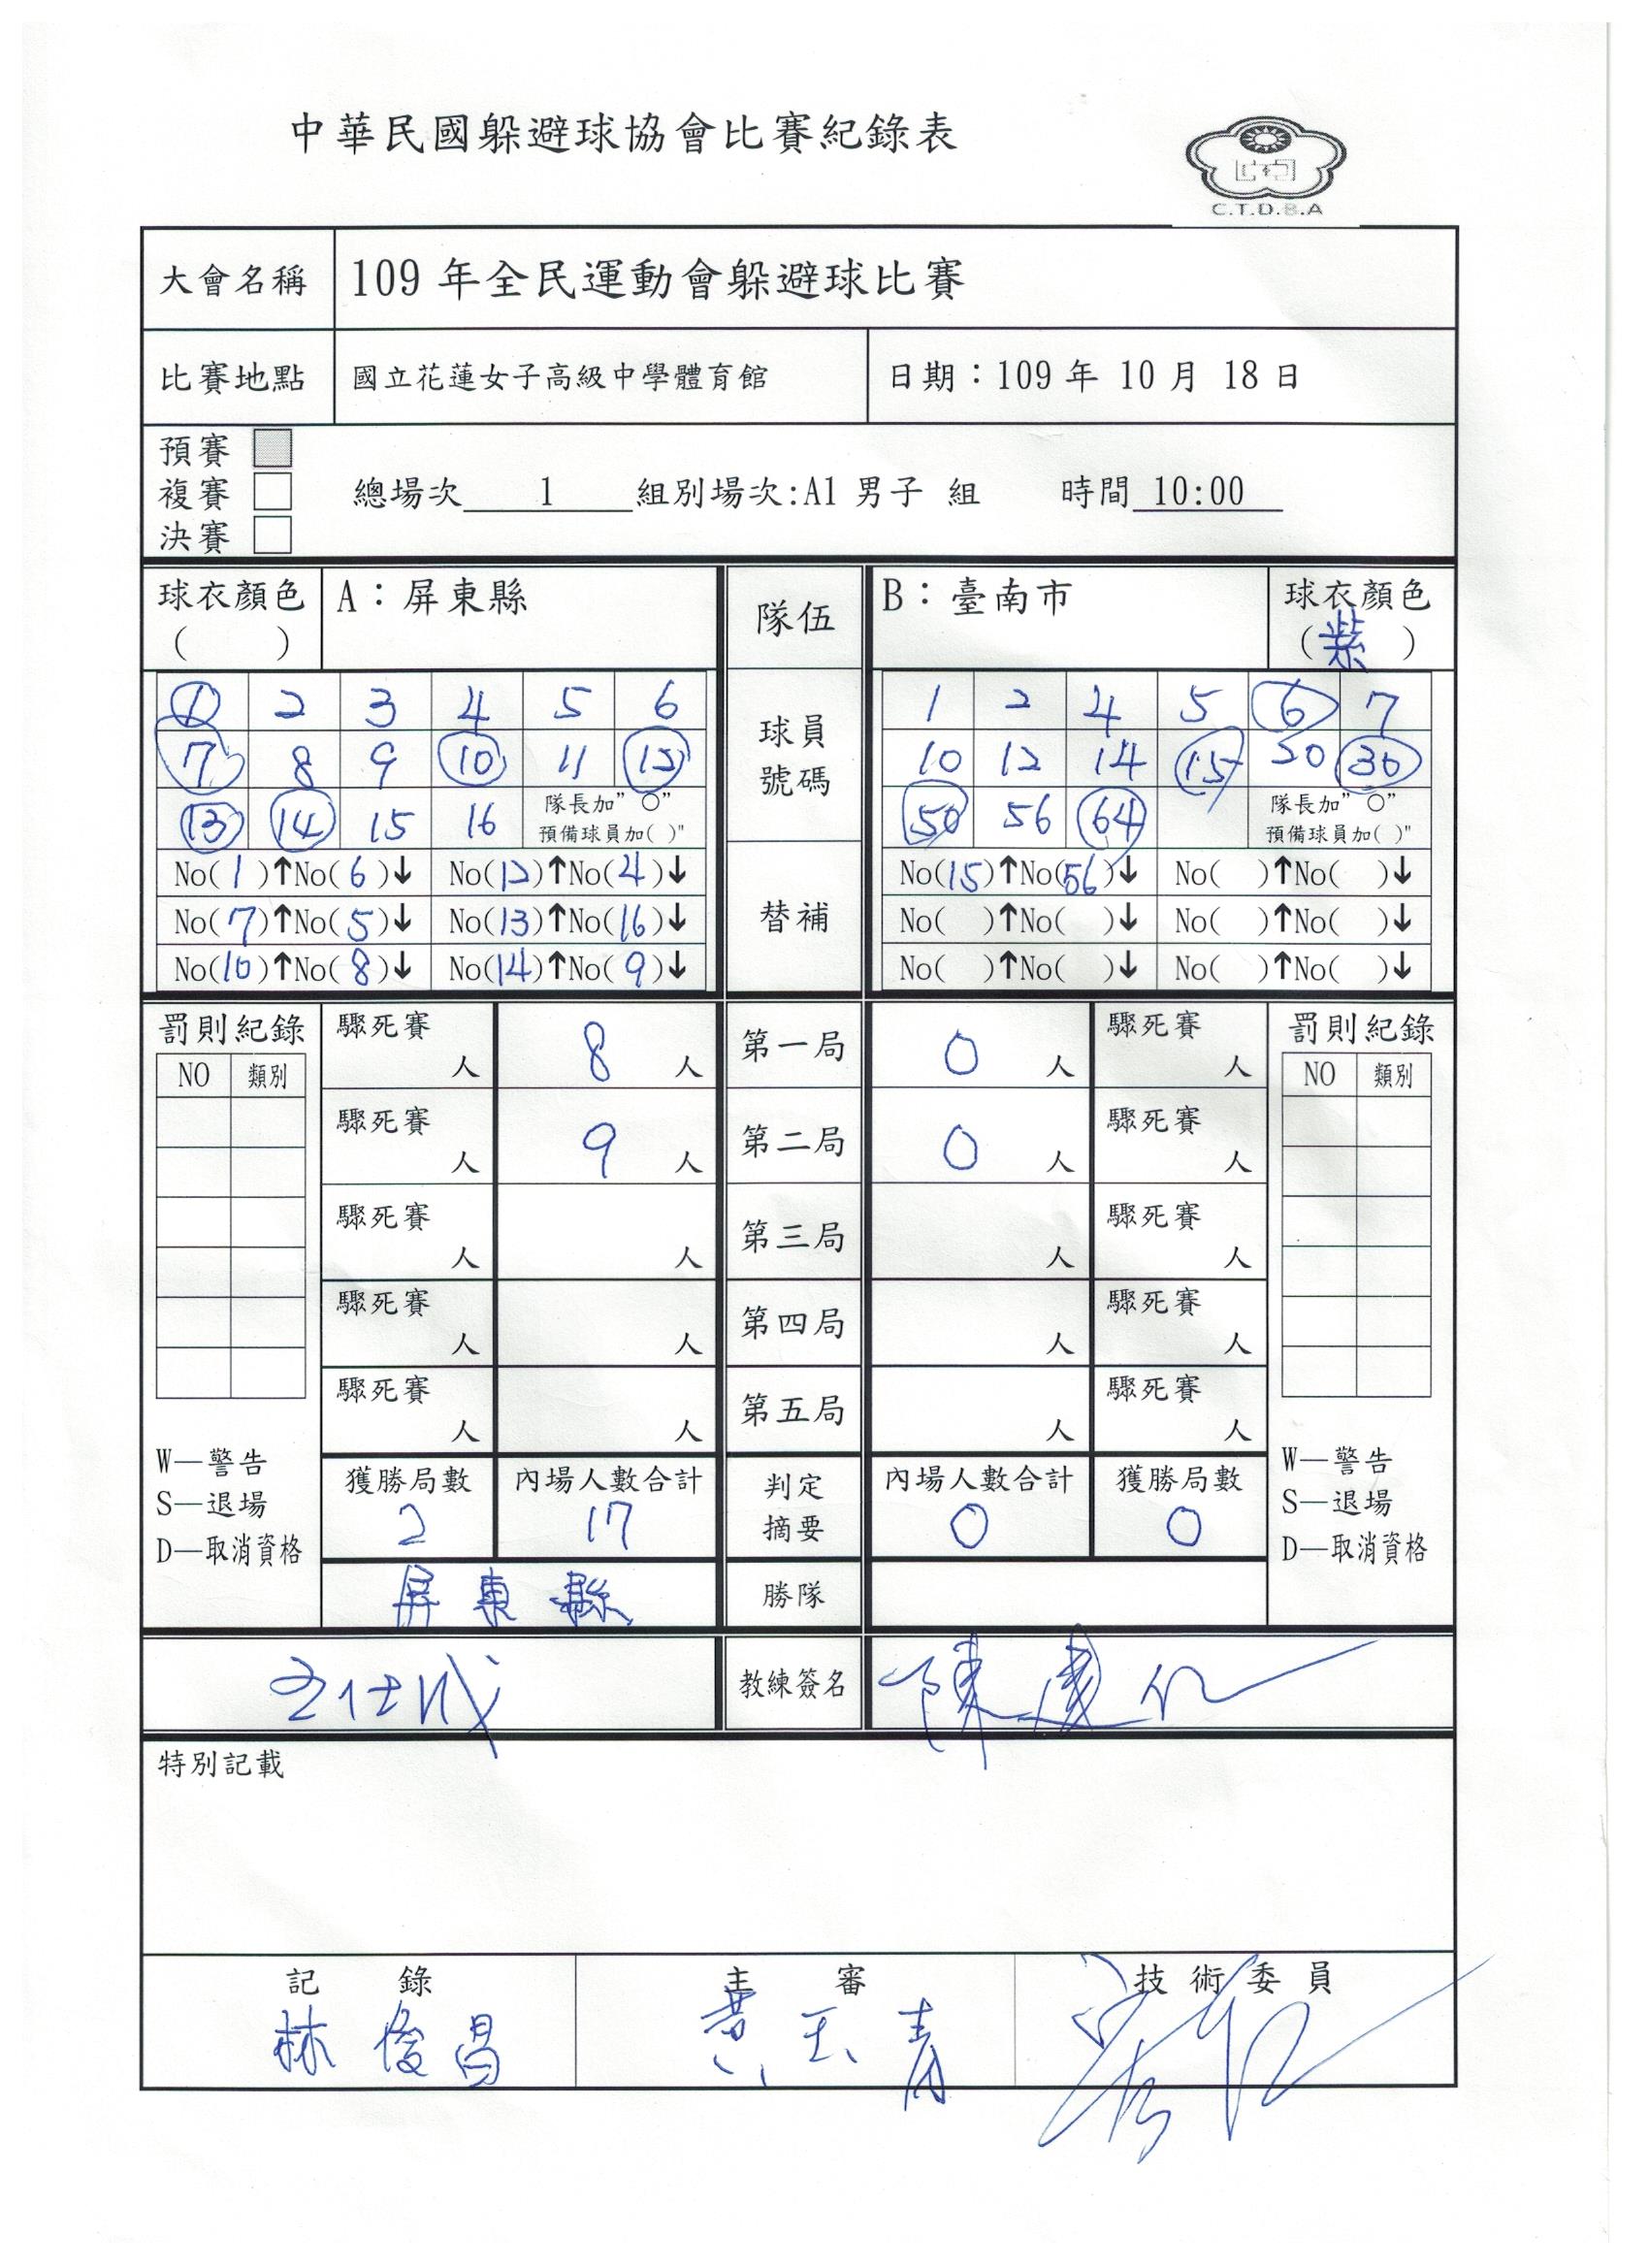 中華民國躲避球協會比賽紀錄表
C.T.D.B.A
大會名稱 109 年全民運動會躲避球比賽
比賽地點 國立花蓮女子高級中學體育館 日期：109 年 10 月 18 日
預賽
複賽 總場次 1 組別場次:A1 男子 組 時間 10:00
決賽
球衣顏色 ( ) A：屏東縣 隊伍 B：臺南市 球衣顏色 (紫)
1 2 3 4 5 6 球員號碼 1 2 4 5 6 7
7 8 9 10 11 12 10 12 14 15 20 30
13 14 15 16 隊長加"○" 預備球員加( )" 50 56 64 隊長加"○" 預備球員加( )"
No(1)↑No(6)↓ No(12)↑No(4)↓ 替補 No(15)↑No(56)↓ No( )↑No( )↓
No(7)↑No(5)↓ No(13)↑No(16)↓ No( )↑No( )↓ No( )↑No( )↓
No(10)↑No(8)↓ No(14)↑No(9)↓ No( )↑No( )↓ No( )↑No( )↓
罰則紀錄 驟死賽 人 8 人 第一局 0 人 驟死賽 人 罰則紀錄
NO 類別 NO 類別
驟死賽 人 9 人 第二局 0 人 驟死賽 人
驟死賽 人 人 第三局 人 驟死賽 人
驟死賽 人 人 第四局 人 驟死賽 人
驟死賽 人 人 第五局 人 驟死賽 人
W—警告 W—警告
S—退場 S—退場
D—取消資格 D—取消資格
獲勝局數 內場人數合計 判定摘要 內場人數合計 獲勝局數
2 17 0 0
屏東縣 勝隊
教練簽名
特別記載
記錄 主審 技術委員
林俊昌 黃玉青